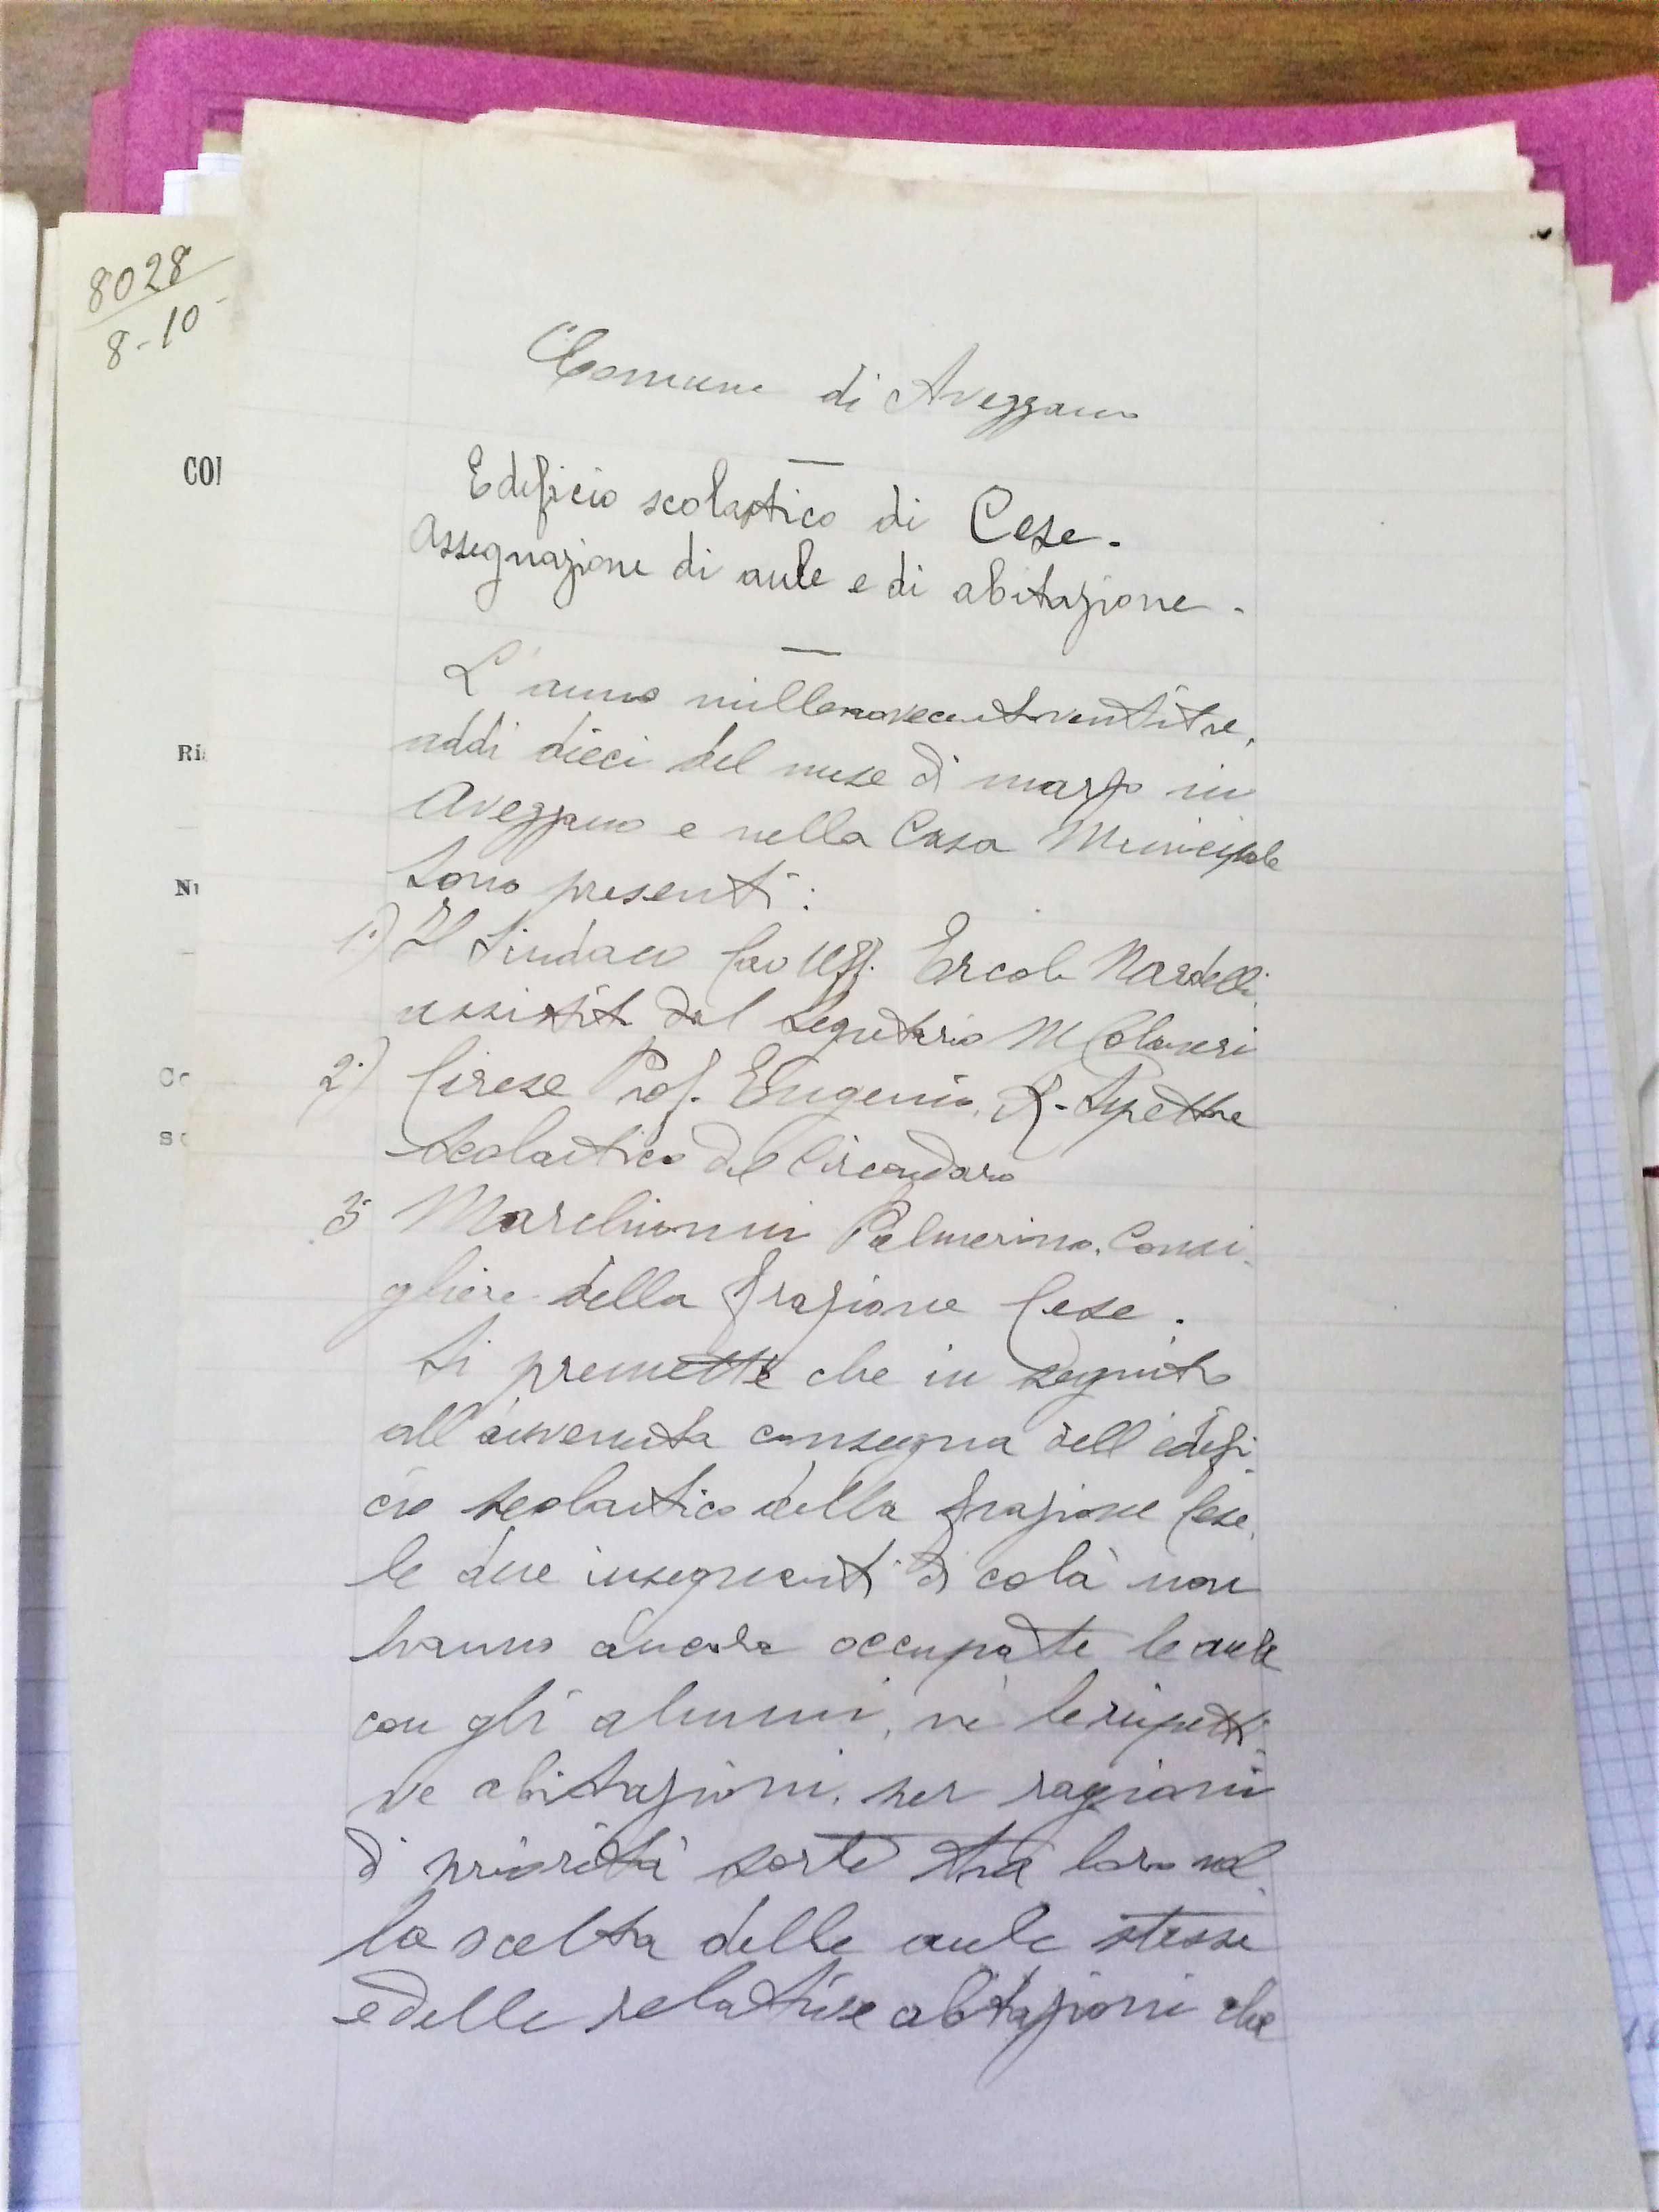 8028
8-10
COI
Ri
Nu
Co
so
Comune di Avezzano
Edificio scolastico di Cese.
Assegnazione di aule e di abitazione.
L'anno millenovecentoventitre,
addi dieci del mese di marzo in
Avezzano e nella Casa Municipale
sono presenti:
1°) Il Sindaco Cav Uff. Ercole Nardelli,
assistito dal Segretario M
2°) Cirese Prof. Eugenio, R. Ispettore
scolastico del Circondario
3° Marchionni Palmerino, Consi-
gliere della frazione Cese.
Si premette che in seguito
all'avvenuta consegna dell'edifi-
cio scolastico della frazione Cese,
le due insegnanti di colà non
hanno ancora occupate le aule
con gli alunni, nè le rispetti-
ve abitazioni, per ragioni
di priorità sorte tra loro nel-
la scelta delle aule stesse
e delle relative abitazioni che